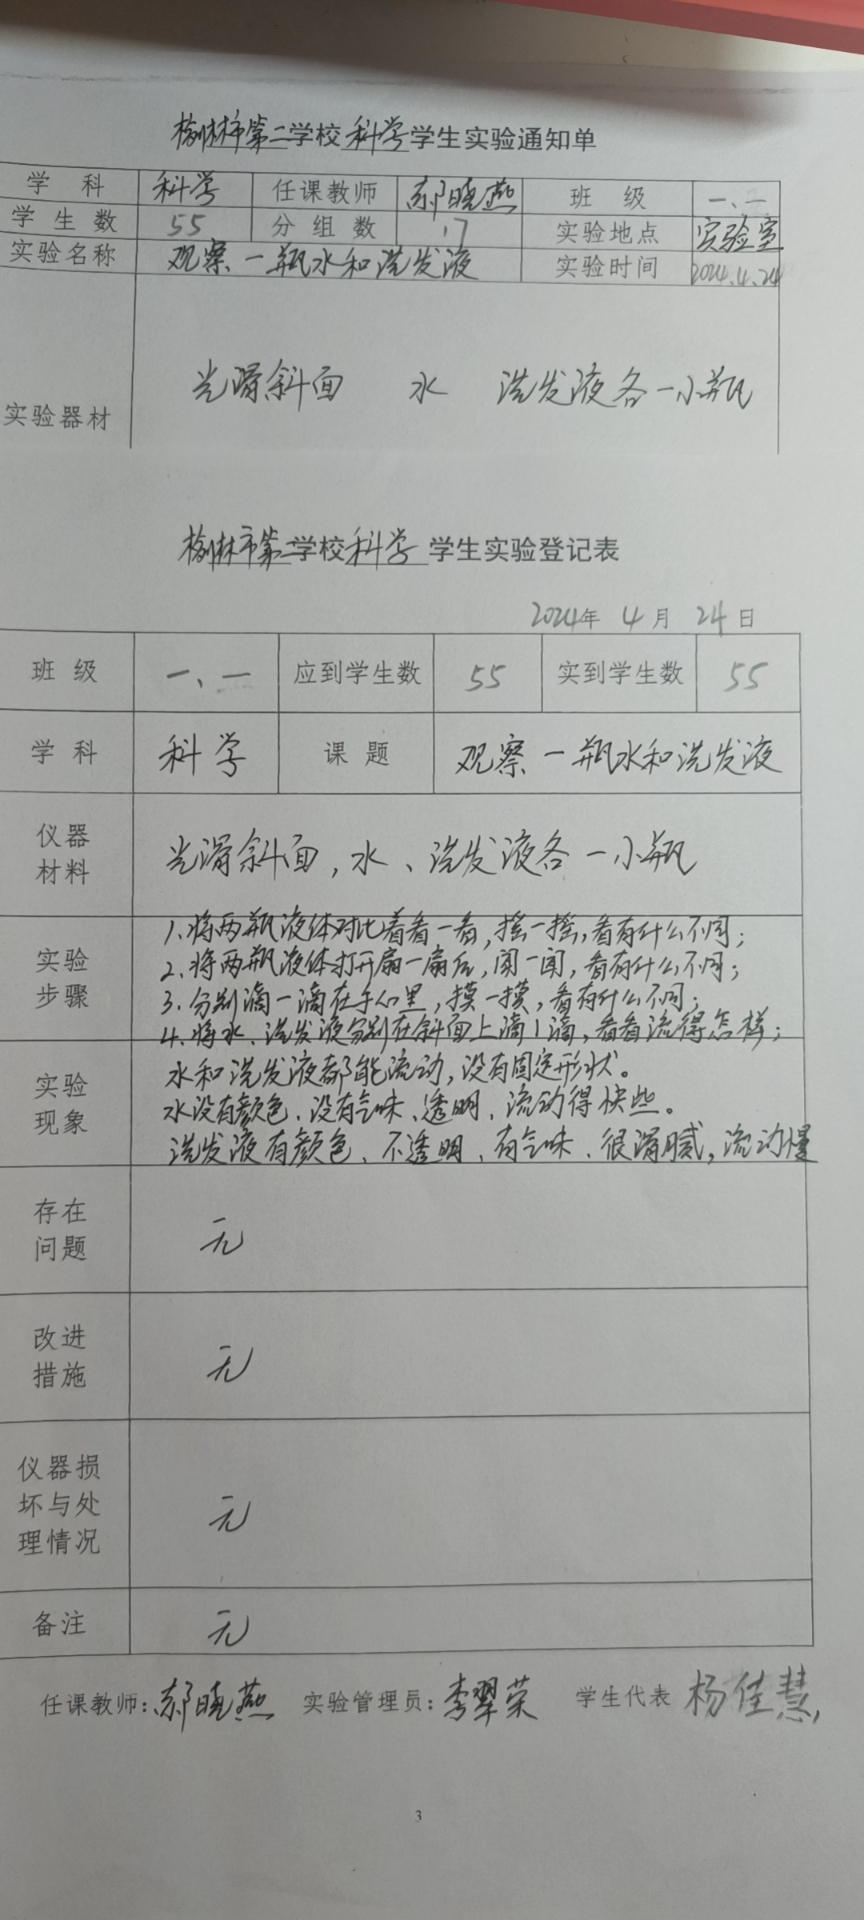 榆林市第二学校科学学生实验通知单
学 科 科学 任课教师 郝晓燕 班 级 一、一
学生数 55 分组数 17 实验地点 实验室
实验名称 观察一瓶水和洗发液 实验时间 2024.4.24
实验器材 光滑斜面 水 洗发液各一小瓶
榆林市第二学校科学 学生实验登记表
2024年 4月 24日
班 级 一、一 应到学生数 55 实到学生数 55
学 科 科学 课 题 观察一瓶水和洗发液
仪器
材料
光滑斜面，水、洗发液各一小瓶
实验
步骤
1、将两瓶液体对比着看一看，摇一摇，看有什么不同；
2、将两瓶液体打开扇一扇后，闻一闻，看有什么不同；
3、分别滴一滴在手心里，摸一摸，看有什么不同；
4、将水、洗发液分别在斜面上滴1滴，看看流得怎样；
实验
现象
水和洗发液都能流动，没有固定形状。
水没有颜色、没有气味、透明、流动得快些。
洗发液有颜色、不透明、有气味、很滑腻，流动慢
存在
问题
无
改进
措施
无
仪器损
坏与处
理情况
无
备注 无
任课教师：郝晓燕 实验管理员：李翠荣 学生代表 杨佳慧
3